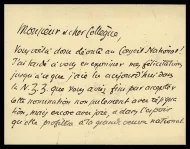 Monsieur & cher Collègue,
Vous voilà donc député au Conseil National!
J'ai tardé à vous en exprimer mes félicitations
jusqu'à ce que j'aie lu aujourd'hui dans
la N.Z.Z. que vous aviez fini par accepter
cette nomination non seulement avec résigna-
tion, mais encore avec joie, & dans l'espoir
qu'elle profitera à la grande cause nationale